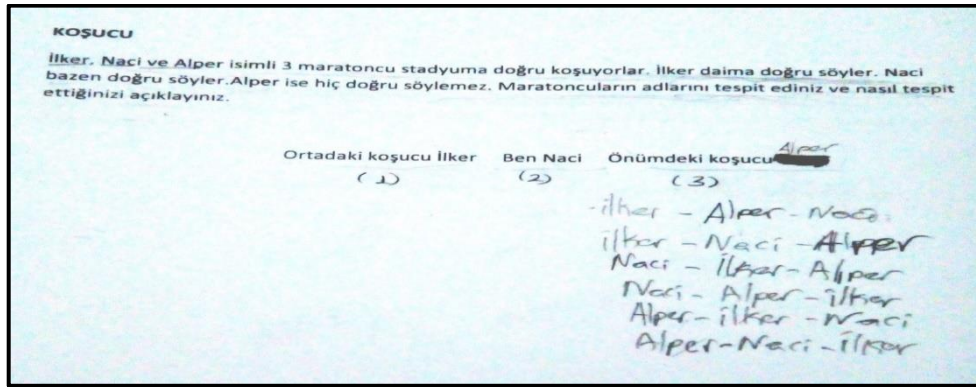 KOŞUCU
İlker, Naci ve Alper isimli 3 maratoncu stadyuma doğru koşuyorlar. İlker daima doğru söyler. Naci
bazen doğru söyler.Alper ise hiç doğru söylemez. Maratoncuların adlarını tespit ediniz ve nasıl tespit
ettiğinizi açıklayınız.
Alper
Ortadaki koşucu İlker Ben Naci Önümdeki koşucu
(1) (2) (3)
-ilker - Alper - Naci
ilker - Naci - Alper
Naci - İlker - Alper
Naci - Alper - ilker
Alper - ilker - Naci
Alper - Naci - ilker